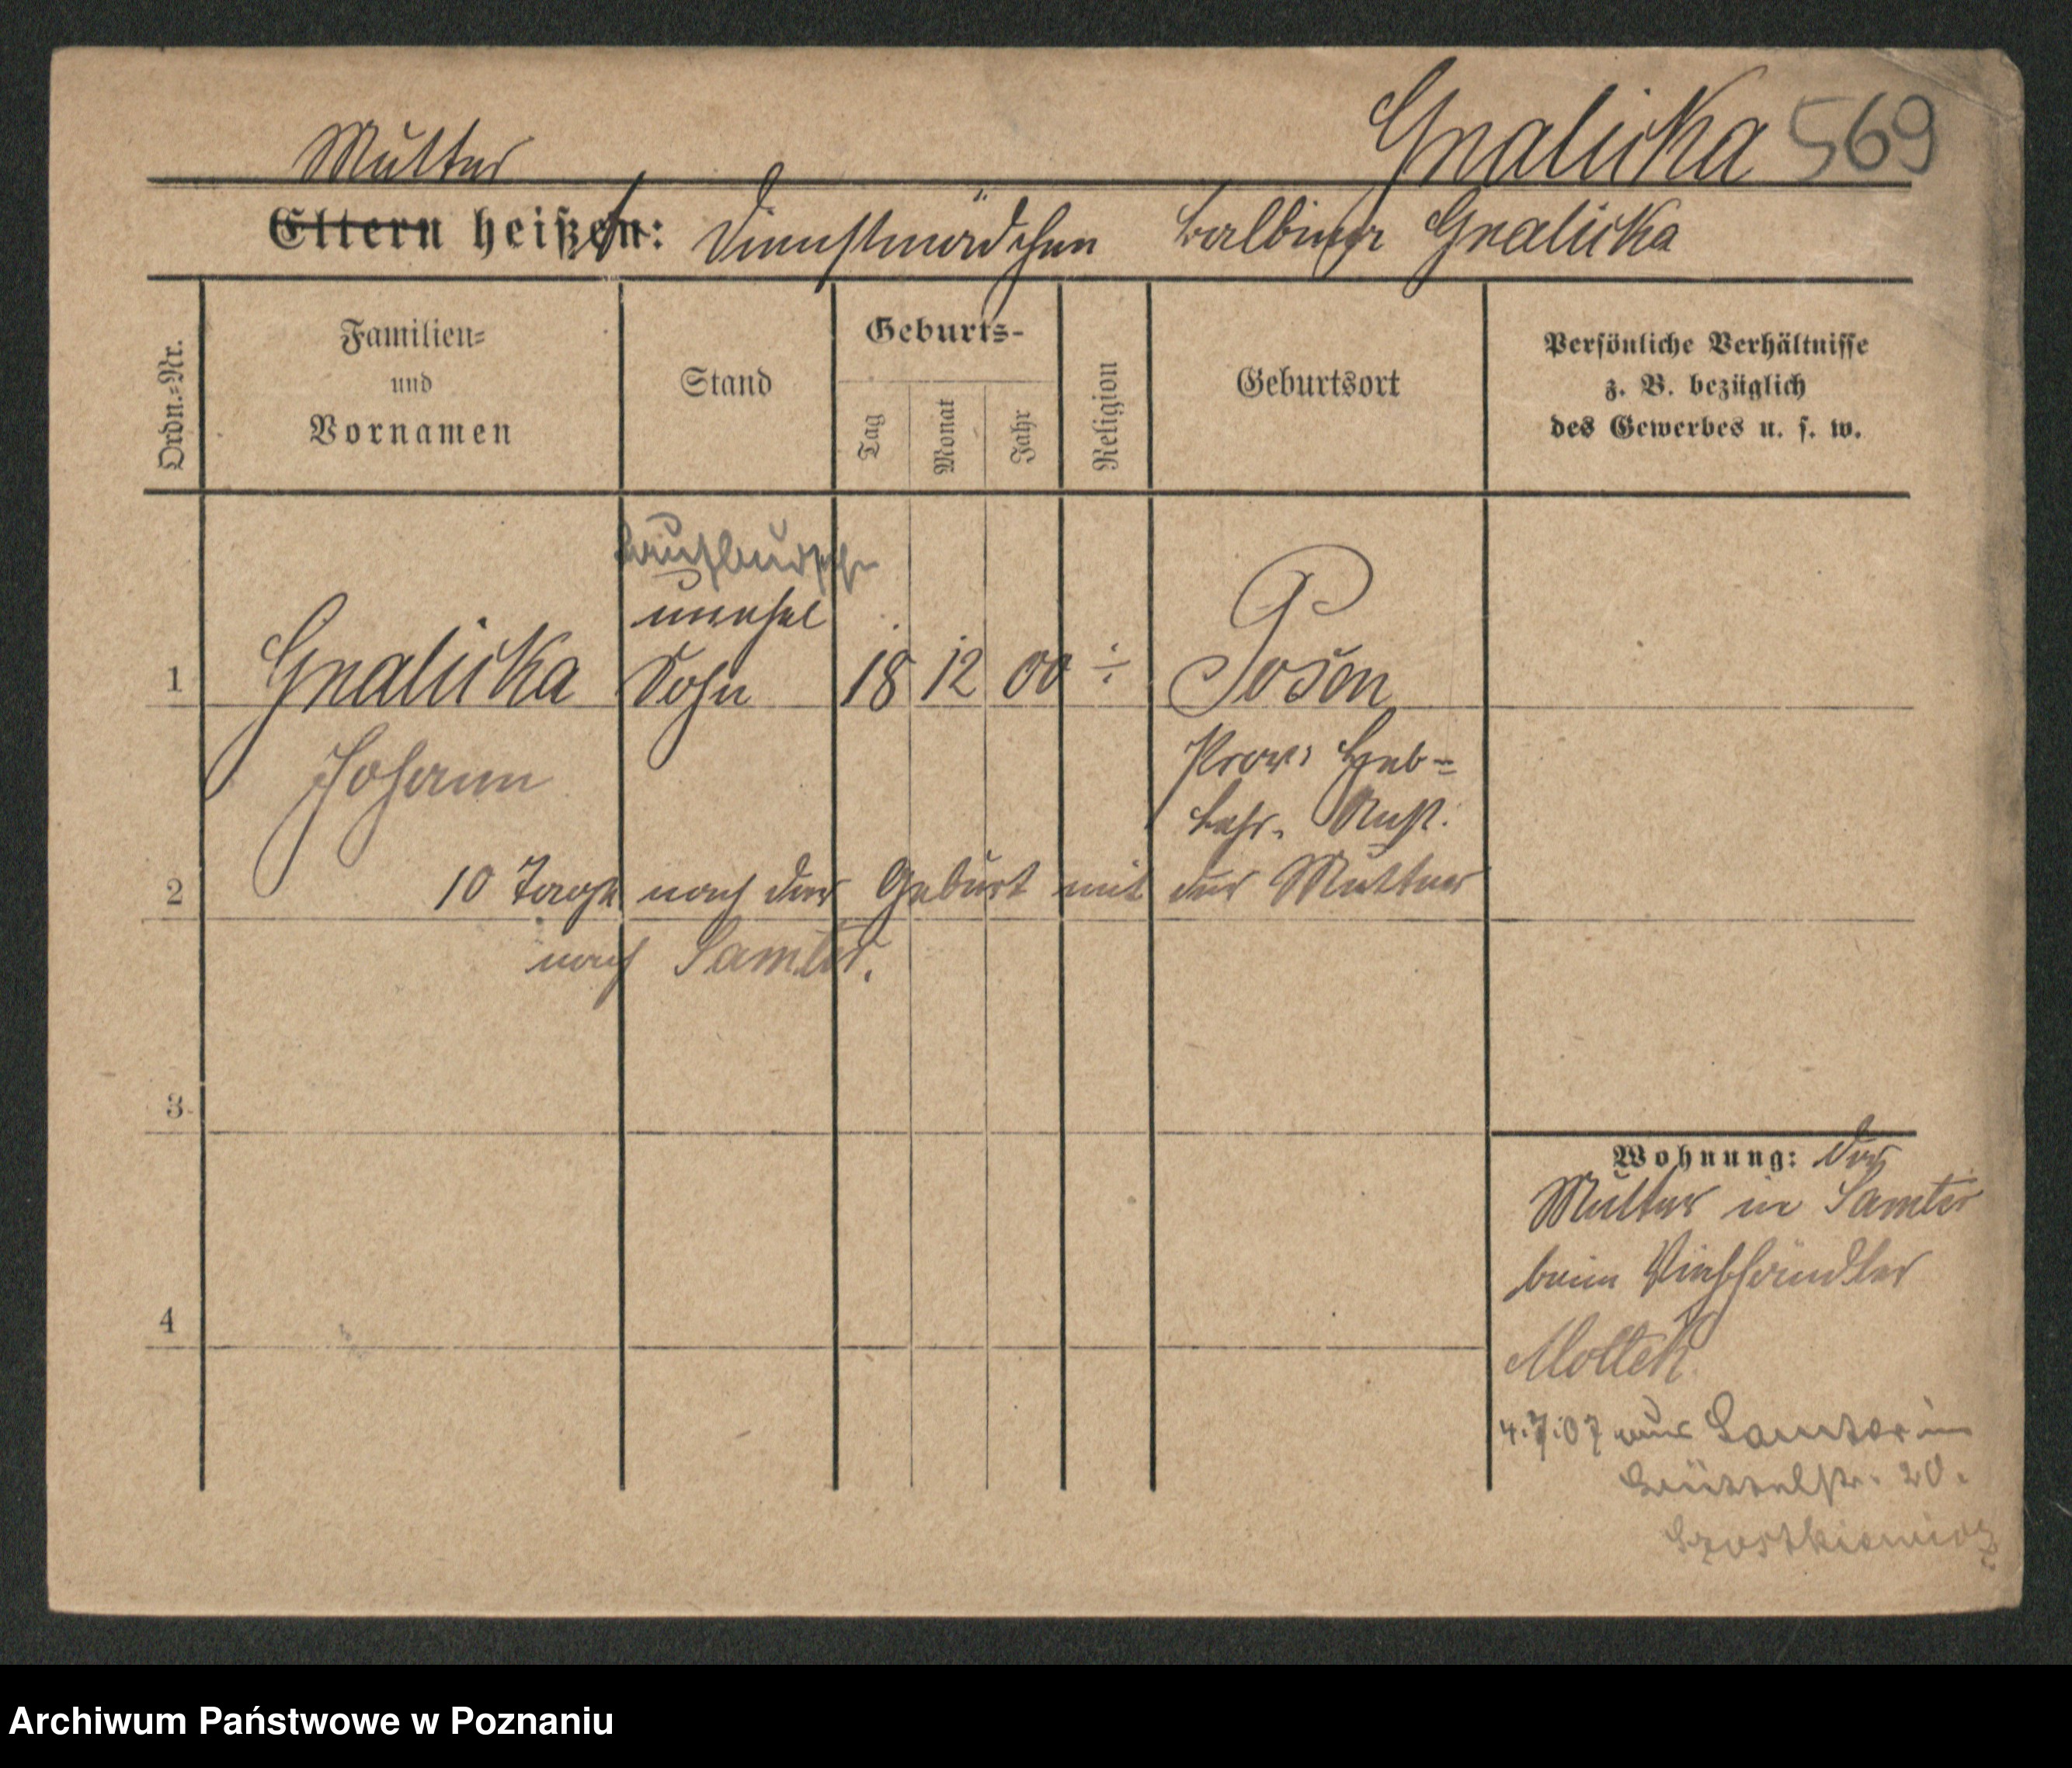 Gnalicka 569
Mutter
Eltern heißt: Dienstmädchen Balbina Gnalicka
Ordn.=Nr.
Familien=
und
Vornamen
Stand
Geburts-
Tag
Monat
Jahr
Religion
Geburtsort
Persönliche Verhältnisse
z. B. bezüglich
des Gewerbes u. s. w.
Laufbursche
unehel
1 Gnalicka Sohn 18 12 00 ÷ Posen
Johann Prov. Heb=
Lehr. Anst.
2 10 Tage nach der Geburt mit der Mutter
nach Samter.
3
Wohnung: der
Mutter in Samter
beim Viehhändler
4
Mottek
4.7.07 aus Samter in
20.
Szostkiewicz
Archiwum Państwowe w Poznaniu